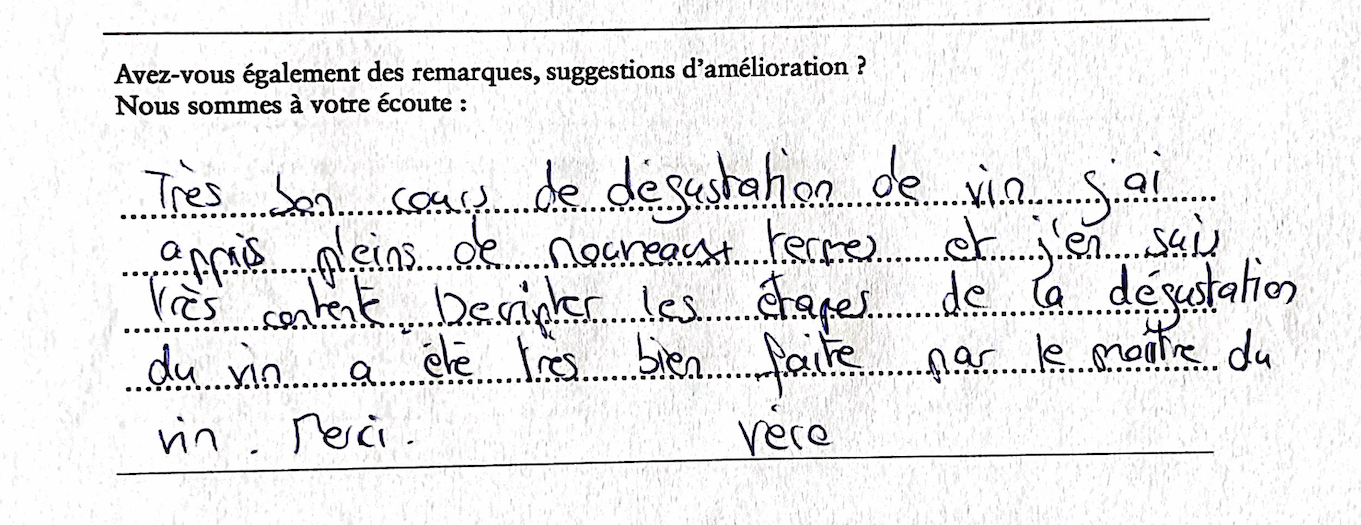 Avez-vous également des remarques, suggestions d'amélioration ?
Nous sommes à votre écoute :
Très bon cours de dégustation de vin j'ai
appris pleins de nouveaux termes et j'en suis
très content. Decripter les étapes de la dégustation
du vin a été très bien faite par le maître du
vin. Merci.